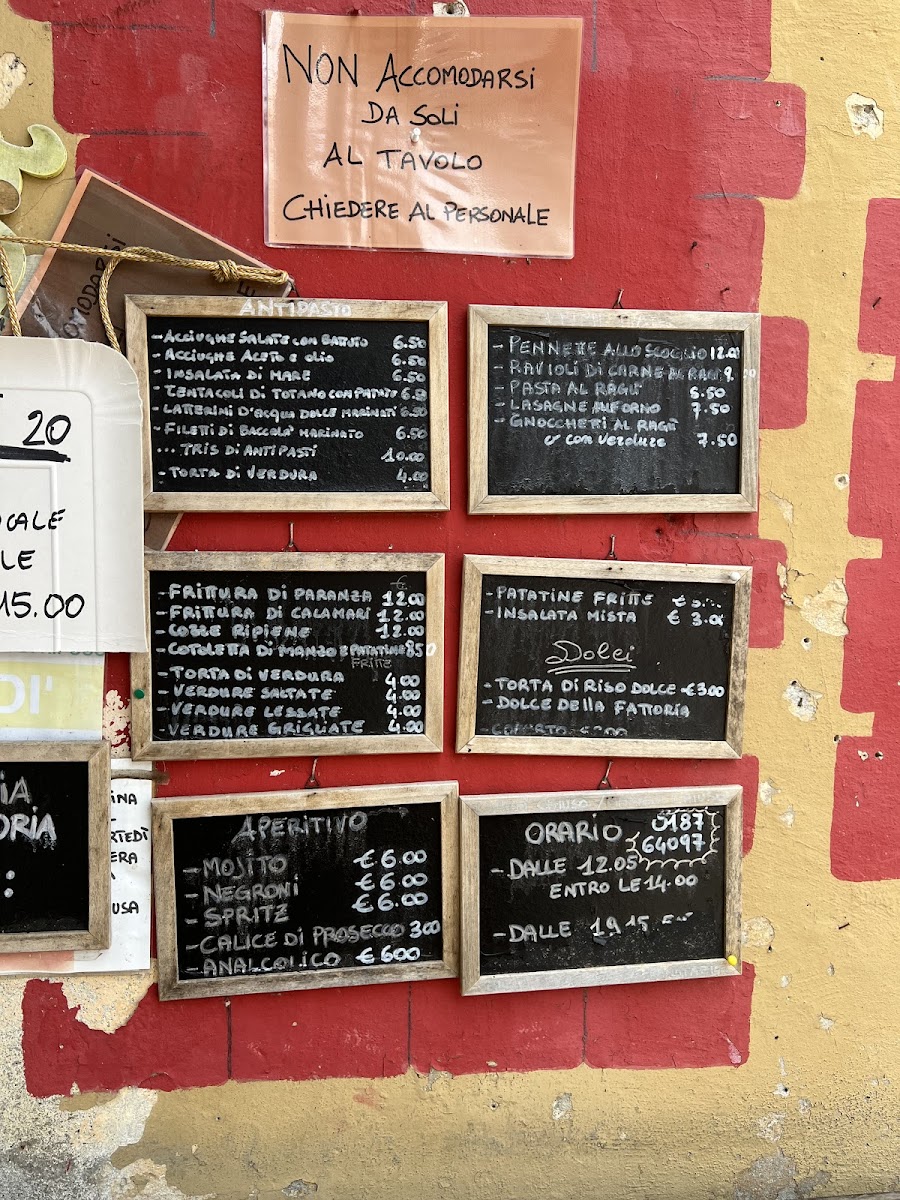 NON ACCOMODARSI
DA SOLI
AL TAVOLO
CHIEDERE AL PERSONALE
ANTIPASTO
- ACCIUGHE SALATE CON BATTUTO 6.50
- ACCIUGHE ACETO E OLIO 6.50
- INSALATA DI MARE 6.50
- TENTACOLI DI TOTANO CON PATATE 6.50
- LATTERINI D'ACQUA DOLCE MARINATI 6.50
- FILETI DI BACCOLA' MARINATO 6.50
... TRIS DI ANTIPASTI 10.00
- TORTA DI VERDURA 4.00
- PENNETTE ALLO SCOGLIO 12.00
- RAVIOLI DI CARNE AL RAGÙ 9.
- PASTA AL RAGÙ 5.50
- LASAGNE AL FORNO 7.50
- GNOCCHETTI AL RAGÙ
o con verdure 7.50
20
LE
15.00
- FRITTURA DI PARANZA 12.00
- FRITTURA DI CALAMARI 12.00
- COZZE RIPIENE 12.00
- COTOLETTA DI MANZO E PATATINE 850
FRITTE
- TORTA DI VERDURA 4.00
- VERDURE SALTATE 4.00
- VERDURE LESSATE 4.00
VERDURE GRIGLIATE 4.00
- PATATINE FRITTE €
- INSALATA MISTA € 3.00
Dolci
- TORTA DI RISO DOLCE - €3.00
- DOLCE DELLA FATTORIA
COPERTO
DI'
IA
ORIA
:
INA
RTEDÌ
ERA
USA
APERITIVO
- MOJITO € 6.00
- NEGRONI € 6.00
- SPRITZ € 6.00
- CALICE DI PROSECCO 300
- ANALCOLICO € 600
ORARIO
0187
64097
- DALLE 12.05
ENTRO LE 14.00
- DALLE 19 15